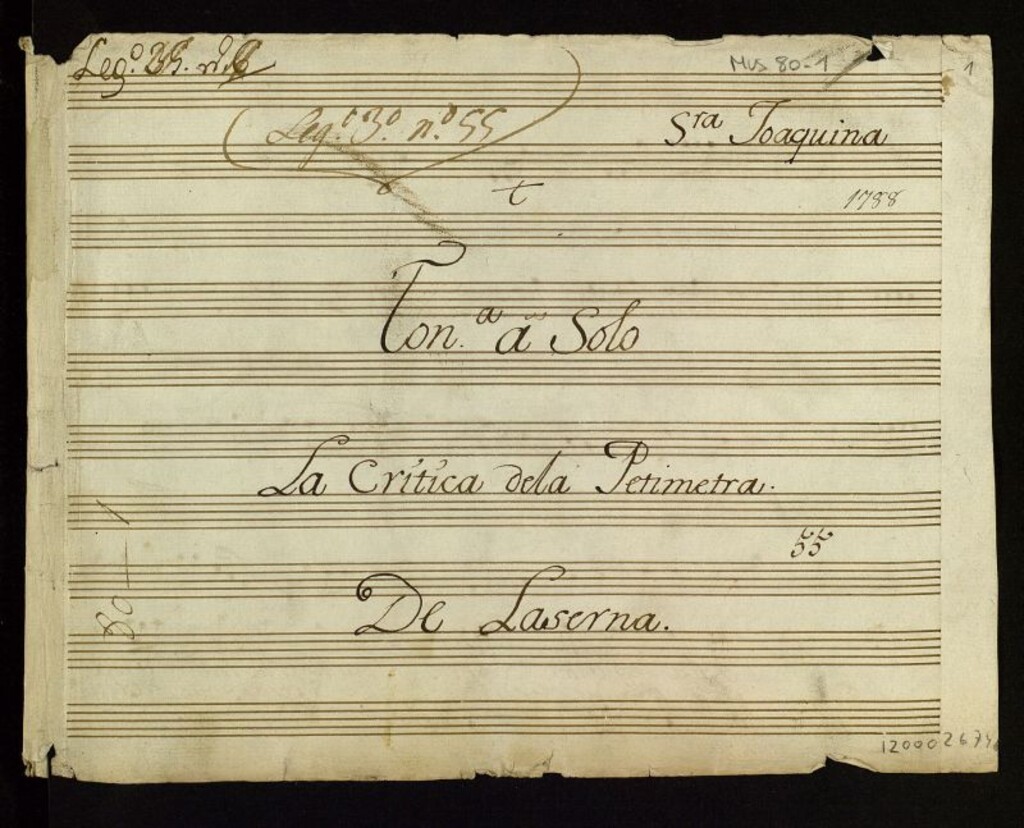 Leg.º 35. nº 6
MUS 80-1
1
Leg.º 3.º n.º 55
Sra Joaquina
t
1788
Ton.a a Solo
La Critica dela Petimetra.
55
80-1
De Laserna.
120002674